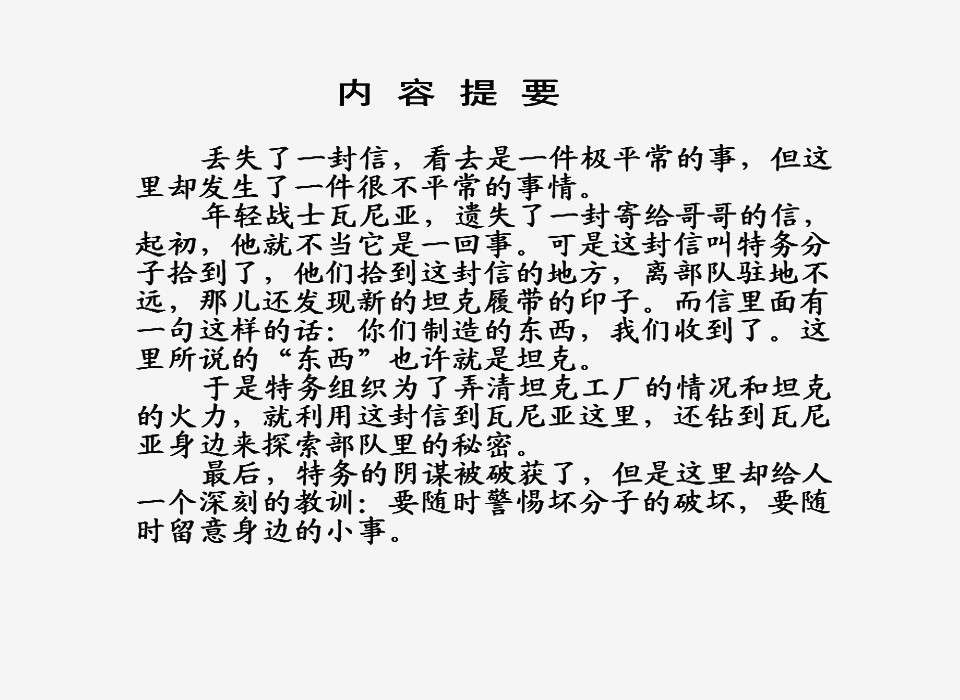 内 容 提 要
丢失了一封信，看去是一件极平常的事，但这
里却发生了一件很不平常的事情。
年轻战士瓦尼亚，遗失了一封寄给哥哥的信，
起初，他就不当它是一回事。可是这封信叫特务分
子拾到了，他们拾到这封信的地方，离部队驻地不
远，那儿还发现新的坦克履带的印子。而信里面有
一句这样的话：你们制造的东西，我们收到了。这
里所说的“东西”也许就是坦克。
于是特务组织为了弄清坦克工厂的情况和坦克
的火力，就利用这封信到瓦尼亚这里，还钻到瓦尼
亚身边来探索部队里的秘密。
最后，特务的阴谋被破获了，但是这里却给人
一个深刻的教训：要随时警惕坏分子的破坏，要随
时留意身边的小事。